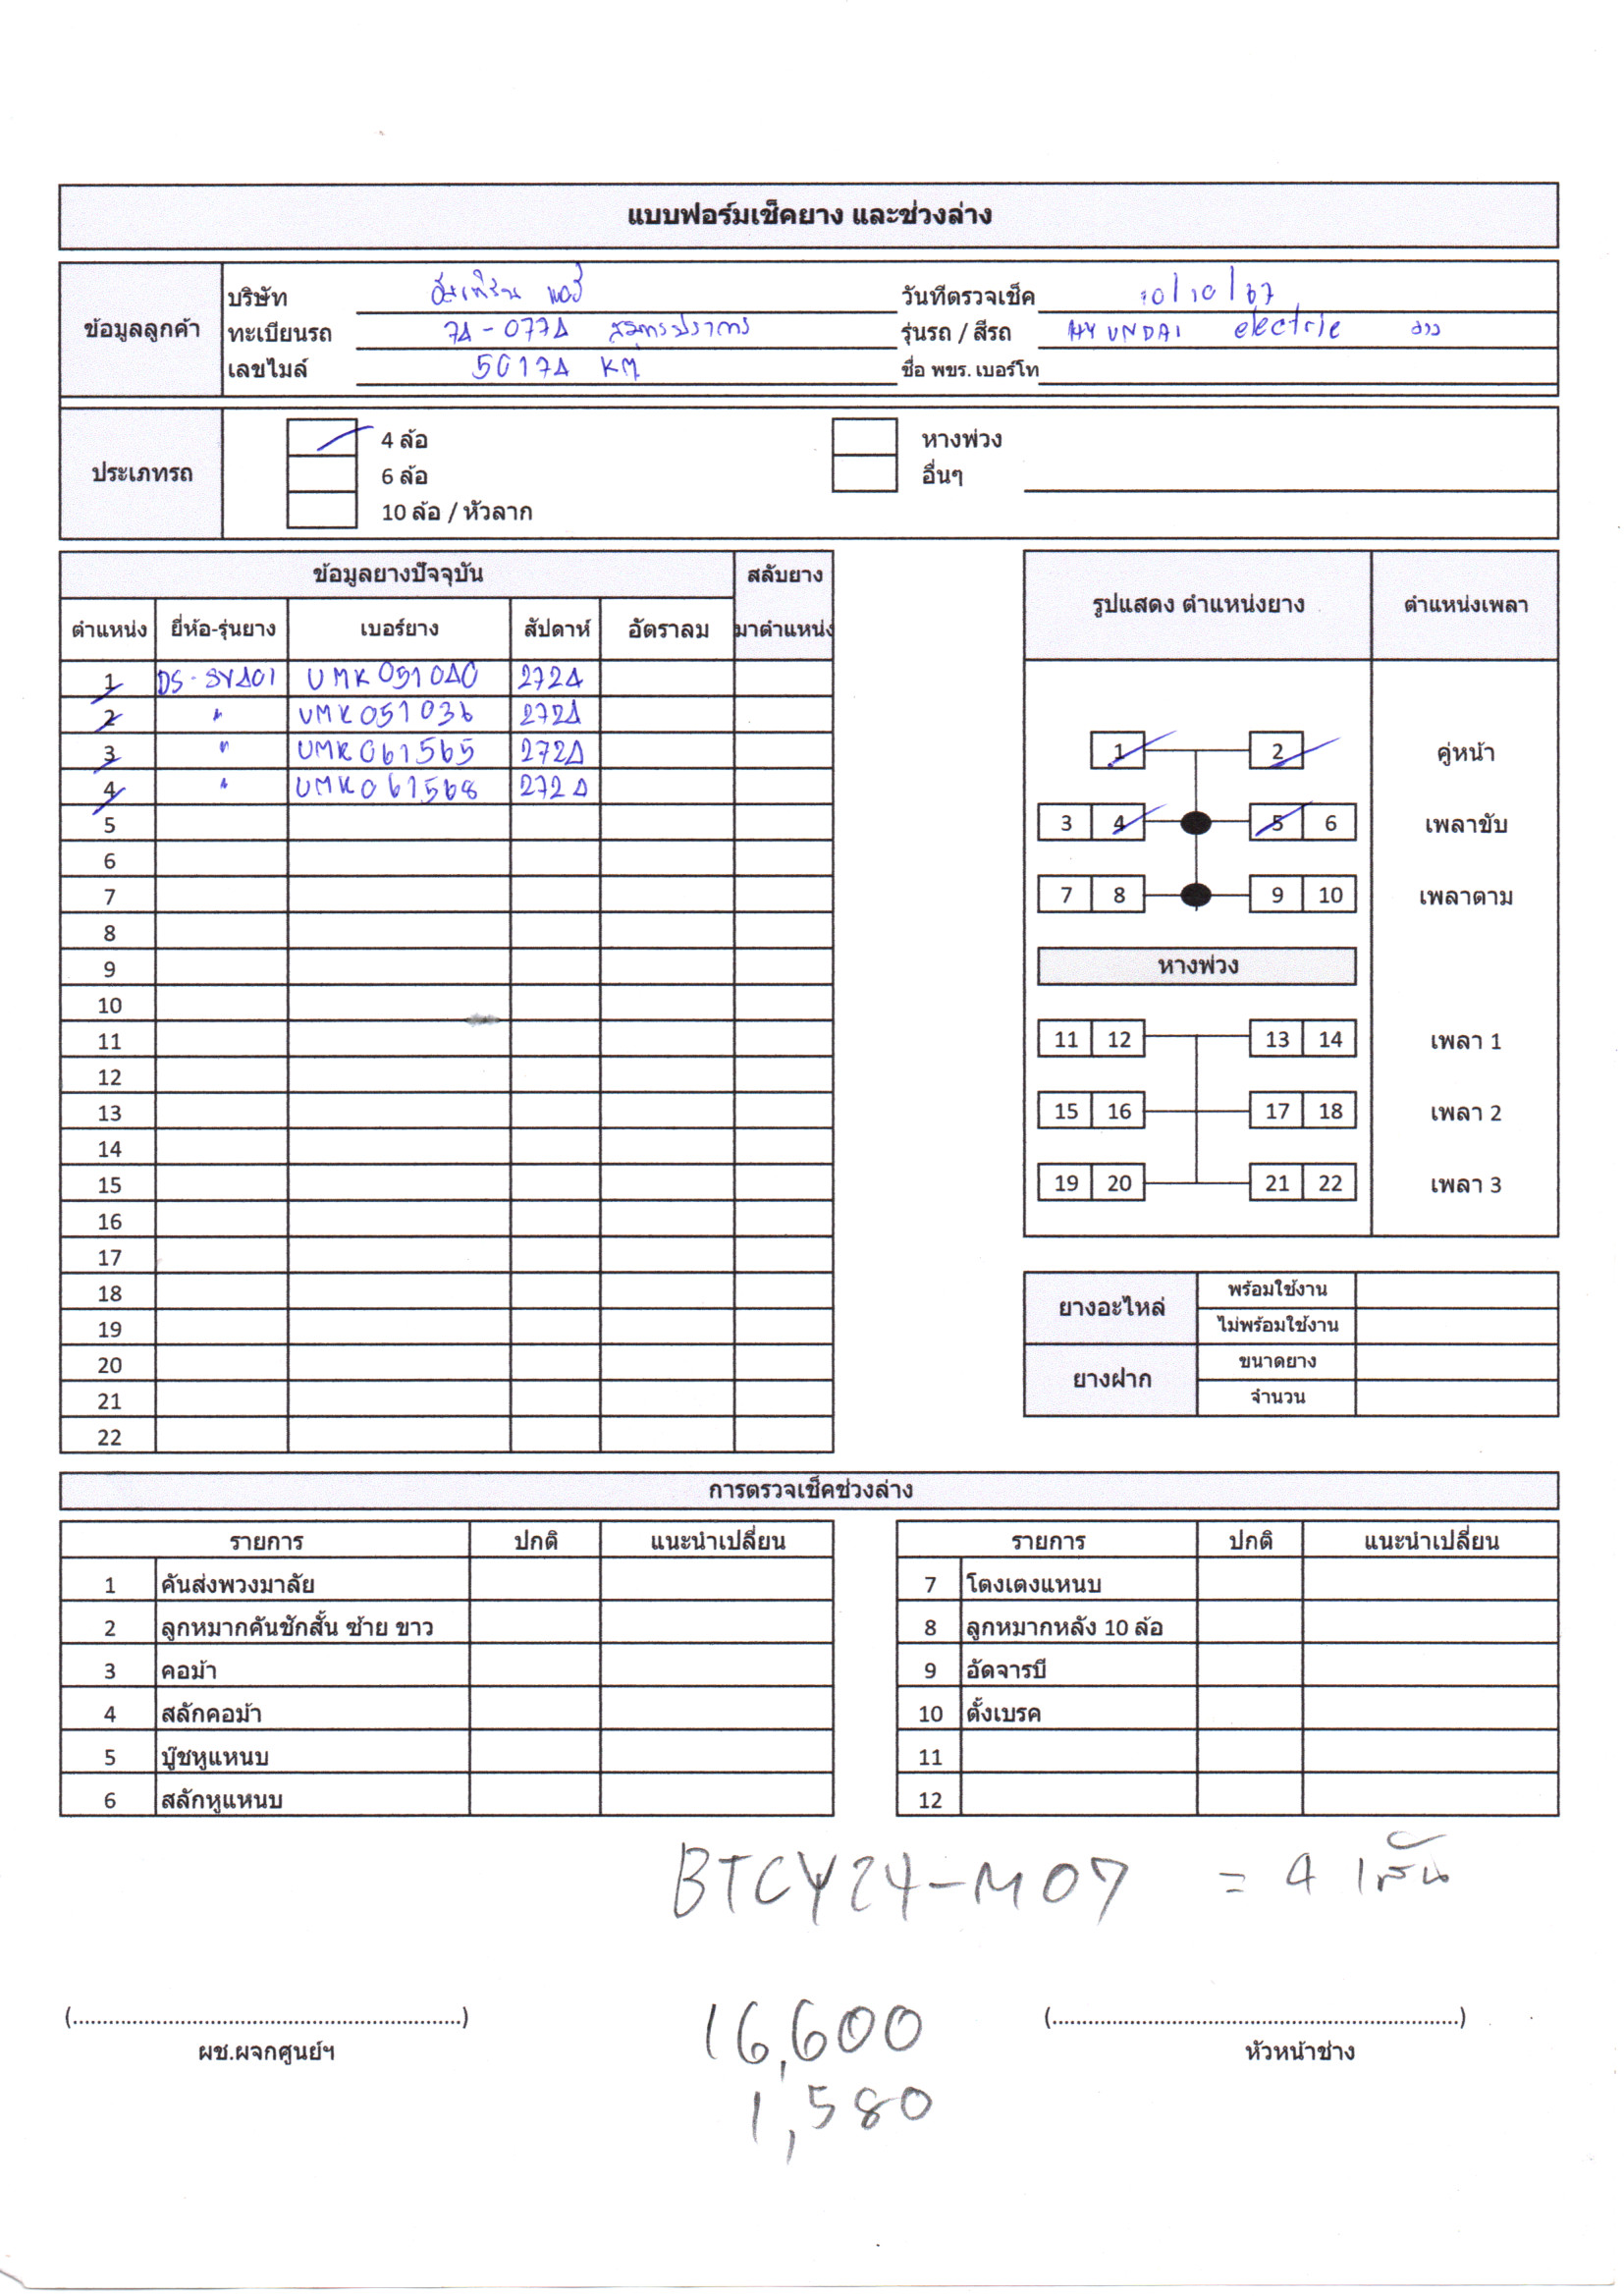 แบบฟอร์มเช็คยาง และช่วงล่าง
ข้อมูลลูกค้า
บริษัท
วันที่ตรวจเช็ค 10/10/67
ทะเบียนรถ 74-0774 สมุทรปราการ
รุ่นรถ / สีรถ HYUNDAI electric ขาว
เลขไมล์ 50174 KM
ชื่อ พขร. เบอร์โท
ประเภทรถ
4 ล้อ
หางพ่วง
6 ล้อ
อื่นๆ
10 ล้อ / หัวลาก
ข้อมูลยางปัจจุบัน สลับยาง
ตำแหน่ง ยี่ห้อ-รุ่นยาง เบอร์ยาง สัปดาห์ อัตราลม มาตำแหน่ง
1 DS-SV401 UMK051040 2724
2 " UMK051036 2724
3 " UMK061565 2724
4 " UMK061568 2724
5
6
7
8
9
10
11
12
13
14
15
16
17
18
19
20
21
22
รูปแสดง ตำแหน่งยาง ตำแหน่งเพลา
1 2 คู่หน้า
3 4 5 6 เพลาขับ
7 8 9 10 เพลาตาม
หางพ่วง
11 12 13 14 เพลา 1
15 16 17 18 เพลา 2
19 20 21 22 เพลา 3
ยางอะไหล่
พร้อมใช้งาน
ไม่พร้อมใช้งาน
ยางฝาก
ขนาดยาง
จำนวน
การตรวจเช็คช่วงล่าง
รายการ ปกติ แนะนำเปลี่ยน
1 คันส่งพวงมาลัย
2 ลูกหมากคันชักสั้น ซ้าย ขาว
3 คอม้า
4 สลักคอม้า
5 บู๊ชหูแหนบ
6 สลักหูแหนบ
รายการ ปกติ แนะนำเปลี่ยน
7 โตงเตงแหนบ
8 ลูกหมากหลัง 10 ล้อ
9 อัดจารบี
10 ตั้งเบรค
11
12
BTCY24-M07 = 4 เส้น
(.................................................................)
ผช.ผจกศูนย์ฯ
16,600
1,580
(.....................................................................)
หัวหน้าช่าง